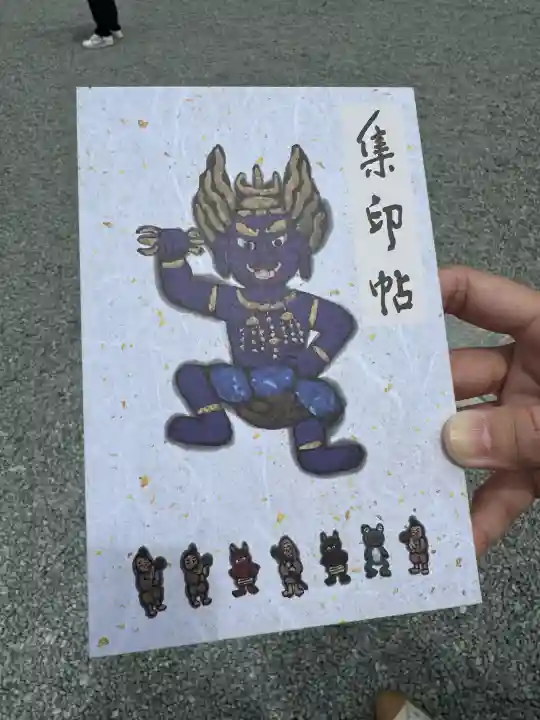 集印帖